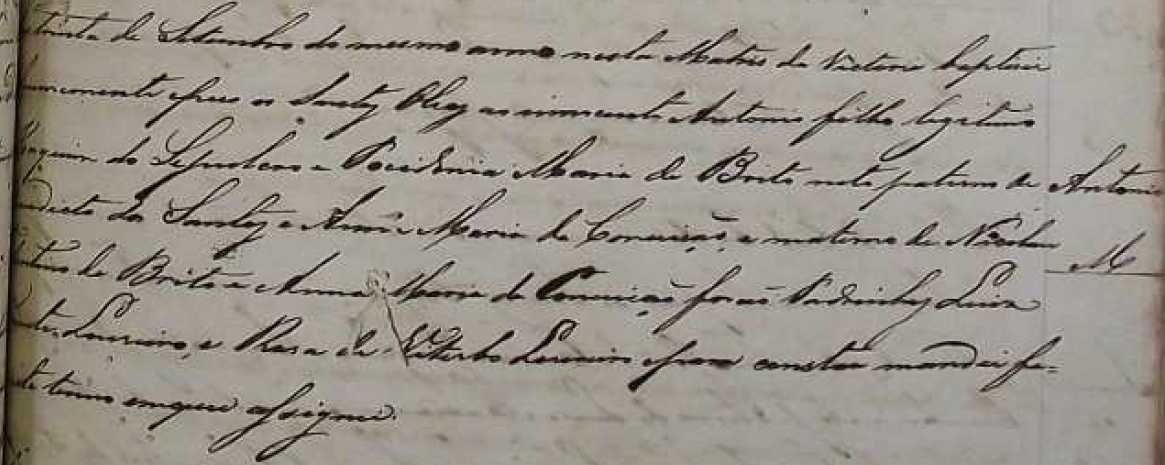 trinta de Setembro do mesmo anno nesta Matris da Victoria baptizei
puz os Santos Oleos ao innocente Antonio filho legitimo
Joaquim do Sepulcro e Maria de Brito neto paterno de Antonio
dos Santos e Anna Maria da Conceição, e materno de Nicolau
de Brito e Anna Maria da Conceição forão Padrinhos Luiz
Loureiro, e Rosa de Viterbo Loureiro e para constar mandei fa-
termo em que assignei.
M